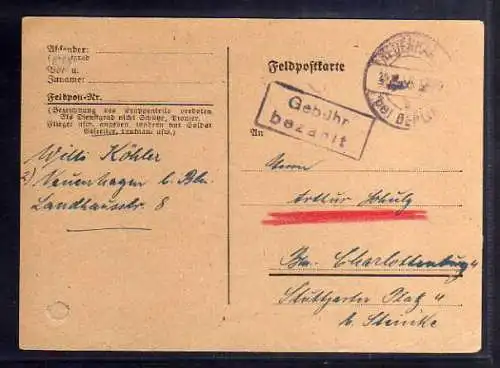 Absender:
Dienstgrad
Vor- u.
Zuname:
Feldpost-Nr.
(Bezeichnung des Truppenteils verboten
Als Dienstgrad nicht Schütze, Pionier,
Flieger usw. angeben, sondern nur Soldat
Gefreiter, Leutnant, usw.)
Willi Köhler
Neuenhagen b. Bln.
Landhausstr. 8
Feldpostkarte
Gebühr
bezahlt
NEUENHAGEN
bei BERLIN
An
Herrn
Arthur Schulz
Bln. Charlottenburg 4
Stuttgarter Platz 4
b. Steinke